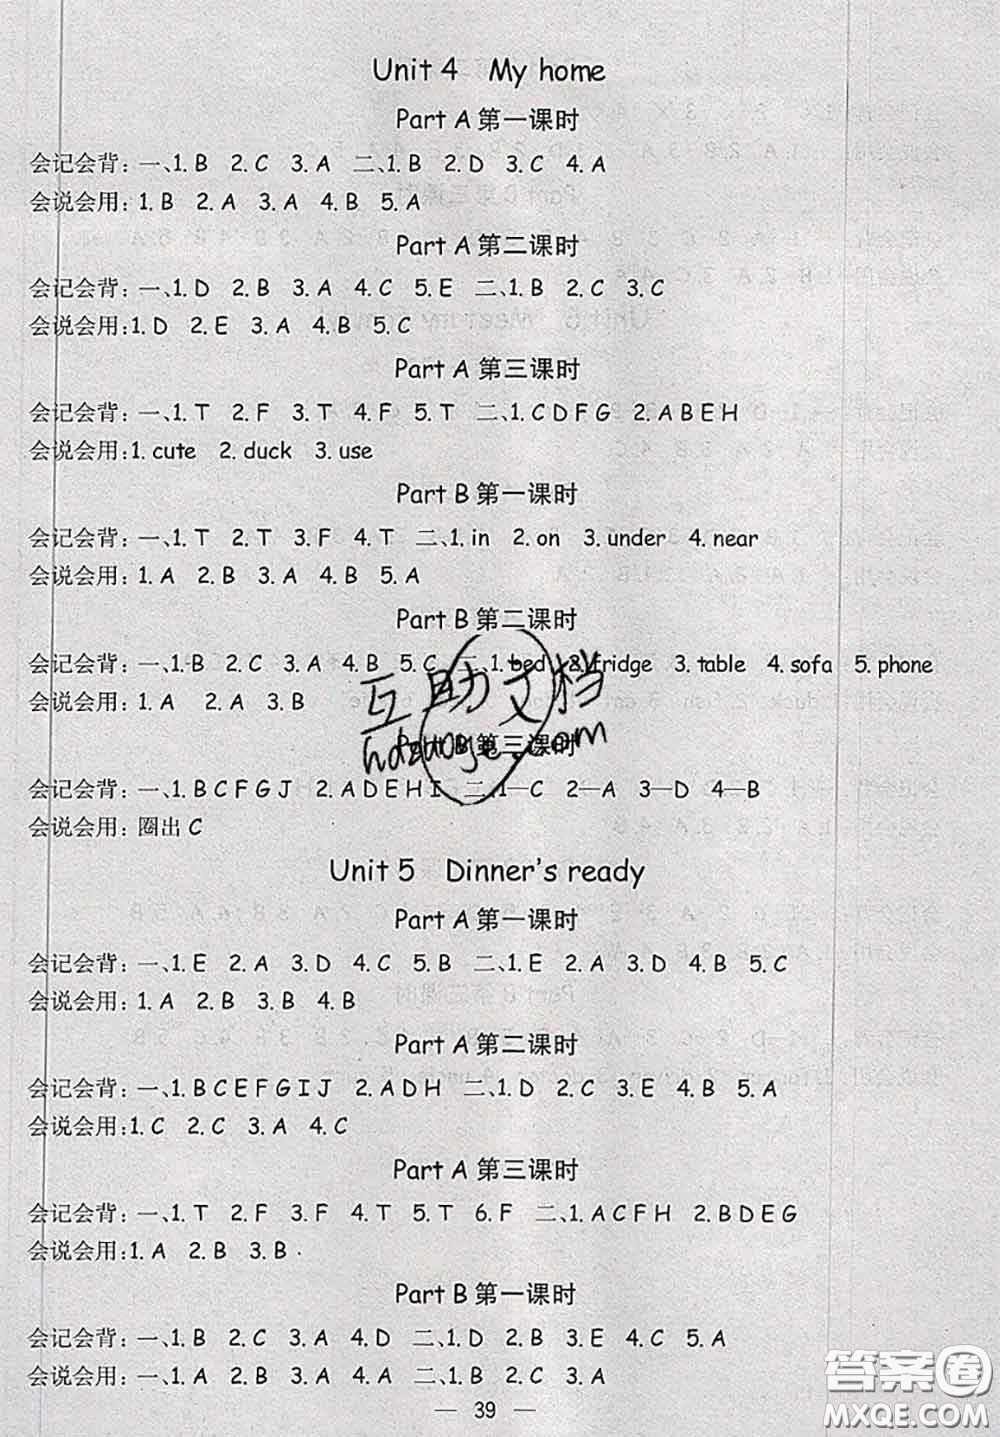 Unit 4 My home
Part A 第一课时
会记会背：一、1. B 2. C 3. A 二、1. B 2. D 3. C 4. A
会说会用：1. B 2. A 3. A 4. B 5. A
Part A 第二课时
会记会背：一、1. D 2. B 3. A 4. C 5. E 二、1. B 2. C 3. C
会说会用：1. D 2. E 3. A 4. B 5. C
Part A 第三课时
会记会背：一、1. T 2. F 3. T 4. F 5. T 二、1. C D F G 2. A B E H
会说会用：1. cute 2. duck 3. use
Part B 第一课时
会记会背：一、1. T 2. T 3. F 4. T 二、1. in 2. on 3. under 4. near
会说会用：1. A 2. B 3. A 4. B 5. A
Part B 第二课时
会记会背：一、1. B 2. C 3. A 4. B 5. C 二、1. bed 2. fridge 3. table 4. sofa 5. phone
会说会用：1. A 2. A 3. B
互助文档
hdzuoye.com
Part B 第三课时
会记会背：一、1. B C F G J 2. A D E H I 二、1—C 2—A 3—D 4—B
会说会用：圈出 C
Unit 5 Dinner's ready
Part A 第一课时
会记会背：一、1. E 2. A 3. D 4. C 5. B 二、1. E 2. D 3. A 4. B 5. C
会说会用：1. A 2. B 3. A 4. B
Part A 第二课时
会记会背：一、1. B C E F G I J 2. A D H 二、1. D 2. C 3. E 4. B 5. A
会说会用：1. C 2. C 3. A 4. C
Part A 第三课时
会记会背：一、1. T 2. F 3. F 4. T 5. T 6. F 二、1. A C F H 2. B D E G
会说会用：1. A 2. B 3. B
Part B 第一课时
会记会背：一、1. B 2. C 3. A 4. D 二、1. D 2. B 3. E 4. C 5. A
会说会用：一、1. A 2. B 3. A 4. A 二、1. B 2. B 3. A
— 39 —
答案圈
MXQE.COM